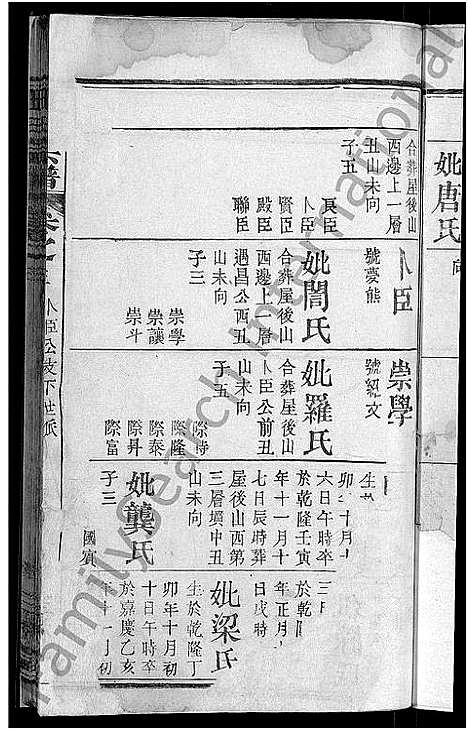 妣唐氏
向
合葬屋後山
西邊上一層
丑山未向
子五
長臣
卜臣
賢臣
殿臣
聯臣
卜臣
號夢熊
妣閆氏
合葬屋後山
西邊上一層
遇昌公酉丑
山未向
子三
崇學
崇讓
崇斗
崇學
號紹文
妣羅氏
合葬屋後山
卜臣公前丑
山未向
子五
際時
際隆
際泰
際昇
際富
生於
卯年十月
六日午時卒
於乾隆壬寅
年十一月十
七日辰時葬
屋後山西第
三層塡中丑
山未向
妣龔氏
子三
國賓
三月
於乾
年正月
日戌時
妣梁氏
生於乾隆丁
卯年十月初
十日午時卒
於嘉慶乙亥
年十一月初
宗譜
卷之
卜臣公支下世派
familysearch International